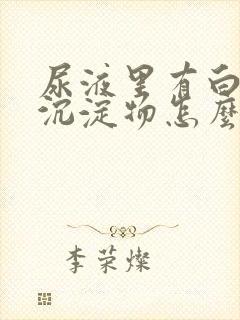 尿液里有白
沉淀物怎麼
李荣燦